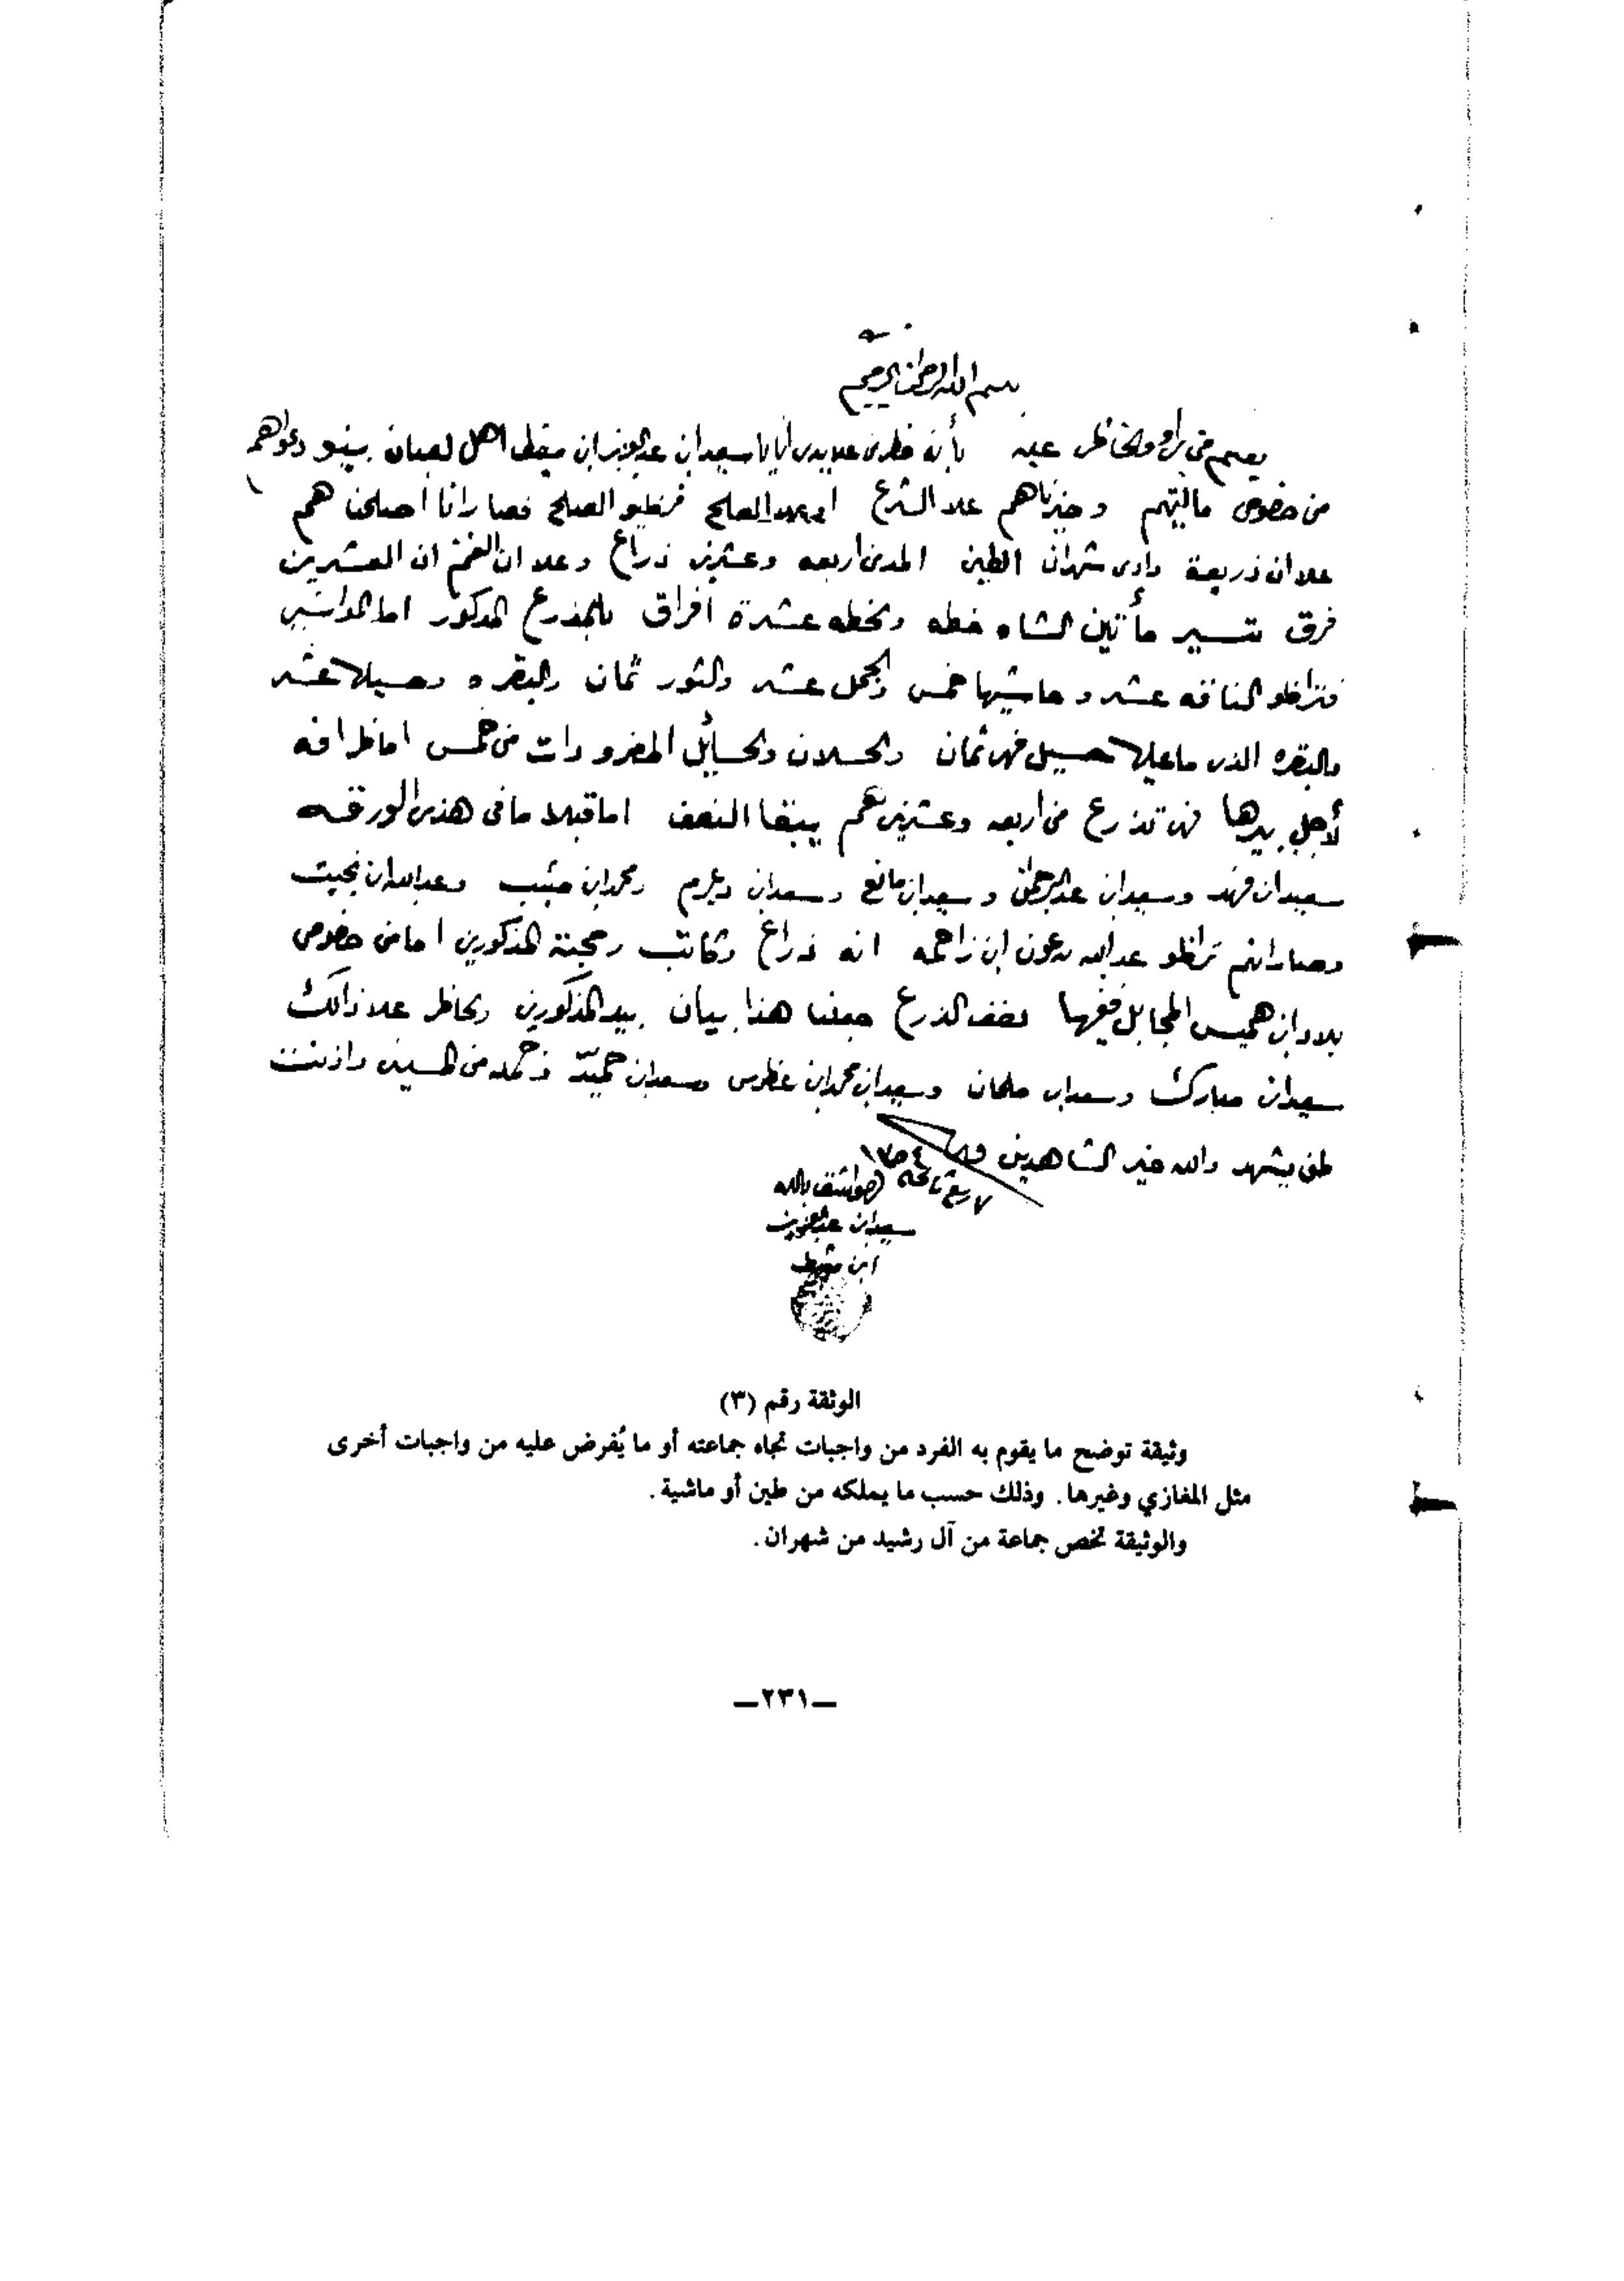 بسم الله الرحمن الرحيم
يعلم من يراه والحاظر عينه بأنه حظرن علايدي أنايا سعيد ابن عبدالعزيز ابن مشيط اهل لعبان بينو دعواهم
من خضوص ماليتهم وخيرناهم علا الشرع او علا الصلح فرظيو الصلح فصار انا أصلحنا هم
علا ان ذريعة وادي شهران الطين المدن اربعه وعشرين ذراع وعلا ان الغنم ان العشرين
فرق تسير مأتين الشاه خطه والخطه عشرة أفراق بالمذرع المذكور اما المواشي
فتراظو الناقه عشر وحاشيها خمس والجمل عشر والثور ثمان والبقره وحسيلها عشر
والبقره الذي ما عليها حسيل فهن ثمان والحسلان والحسايل المفرودات من خمس اما ظرافه
لأجل بيرها فهن تذرع من اربعه وعشرين يبقا النصف اما قبلا ما في هذي الورقه
سعيد ابن فهد وسعيد ابن عبدالرحمن وسعيد ابن مانع وسعد ابن ومحمد ابن وعبدالله ابن بخيت
وصار انهم تراظو عبدالله ابن زاحمه انه ذراع وكاتب المذكورين اما من خضوص
بلاد ابن هميس المجابل ففيها نصف الذرع جعلنا هذا بيان بيد المذكورين والحاظر علا ذالك
سعيد ابن مبارك وسعد ابن ملحان وسعيد ابن محمد ابن وسعد ابن من واذنت
لمن يشهد والله خير الشاهدين
الواثق بالله
سعيد ابن عبدالعزيز
ابن مشيط
الوثقة رقم (٣)
وثيقة توضح ما يقوم به الفرد من واجبات تجاه جماعته أو ما يُفرض عليه من واجبات أخرى
مثل المغازي وغيرها. وذلك حسب ما يملكه من طين أو ماشية.
والوثيقة تخص جماعة من آل رشيد من شهران.
—٢٣١—